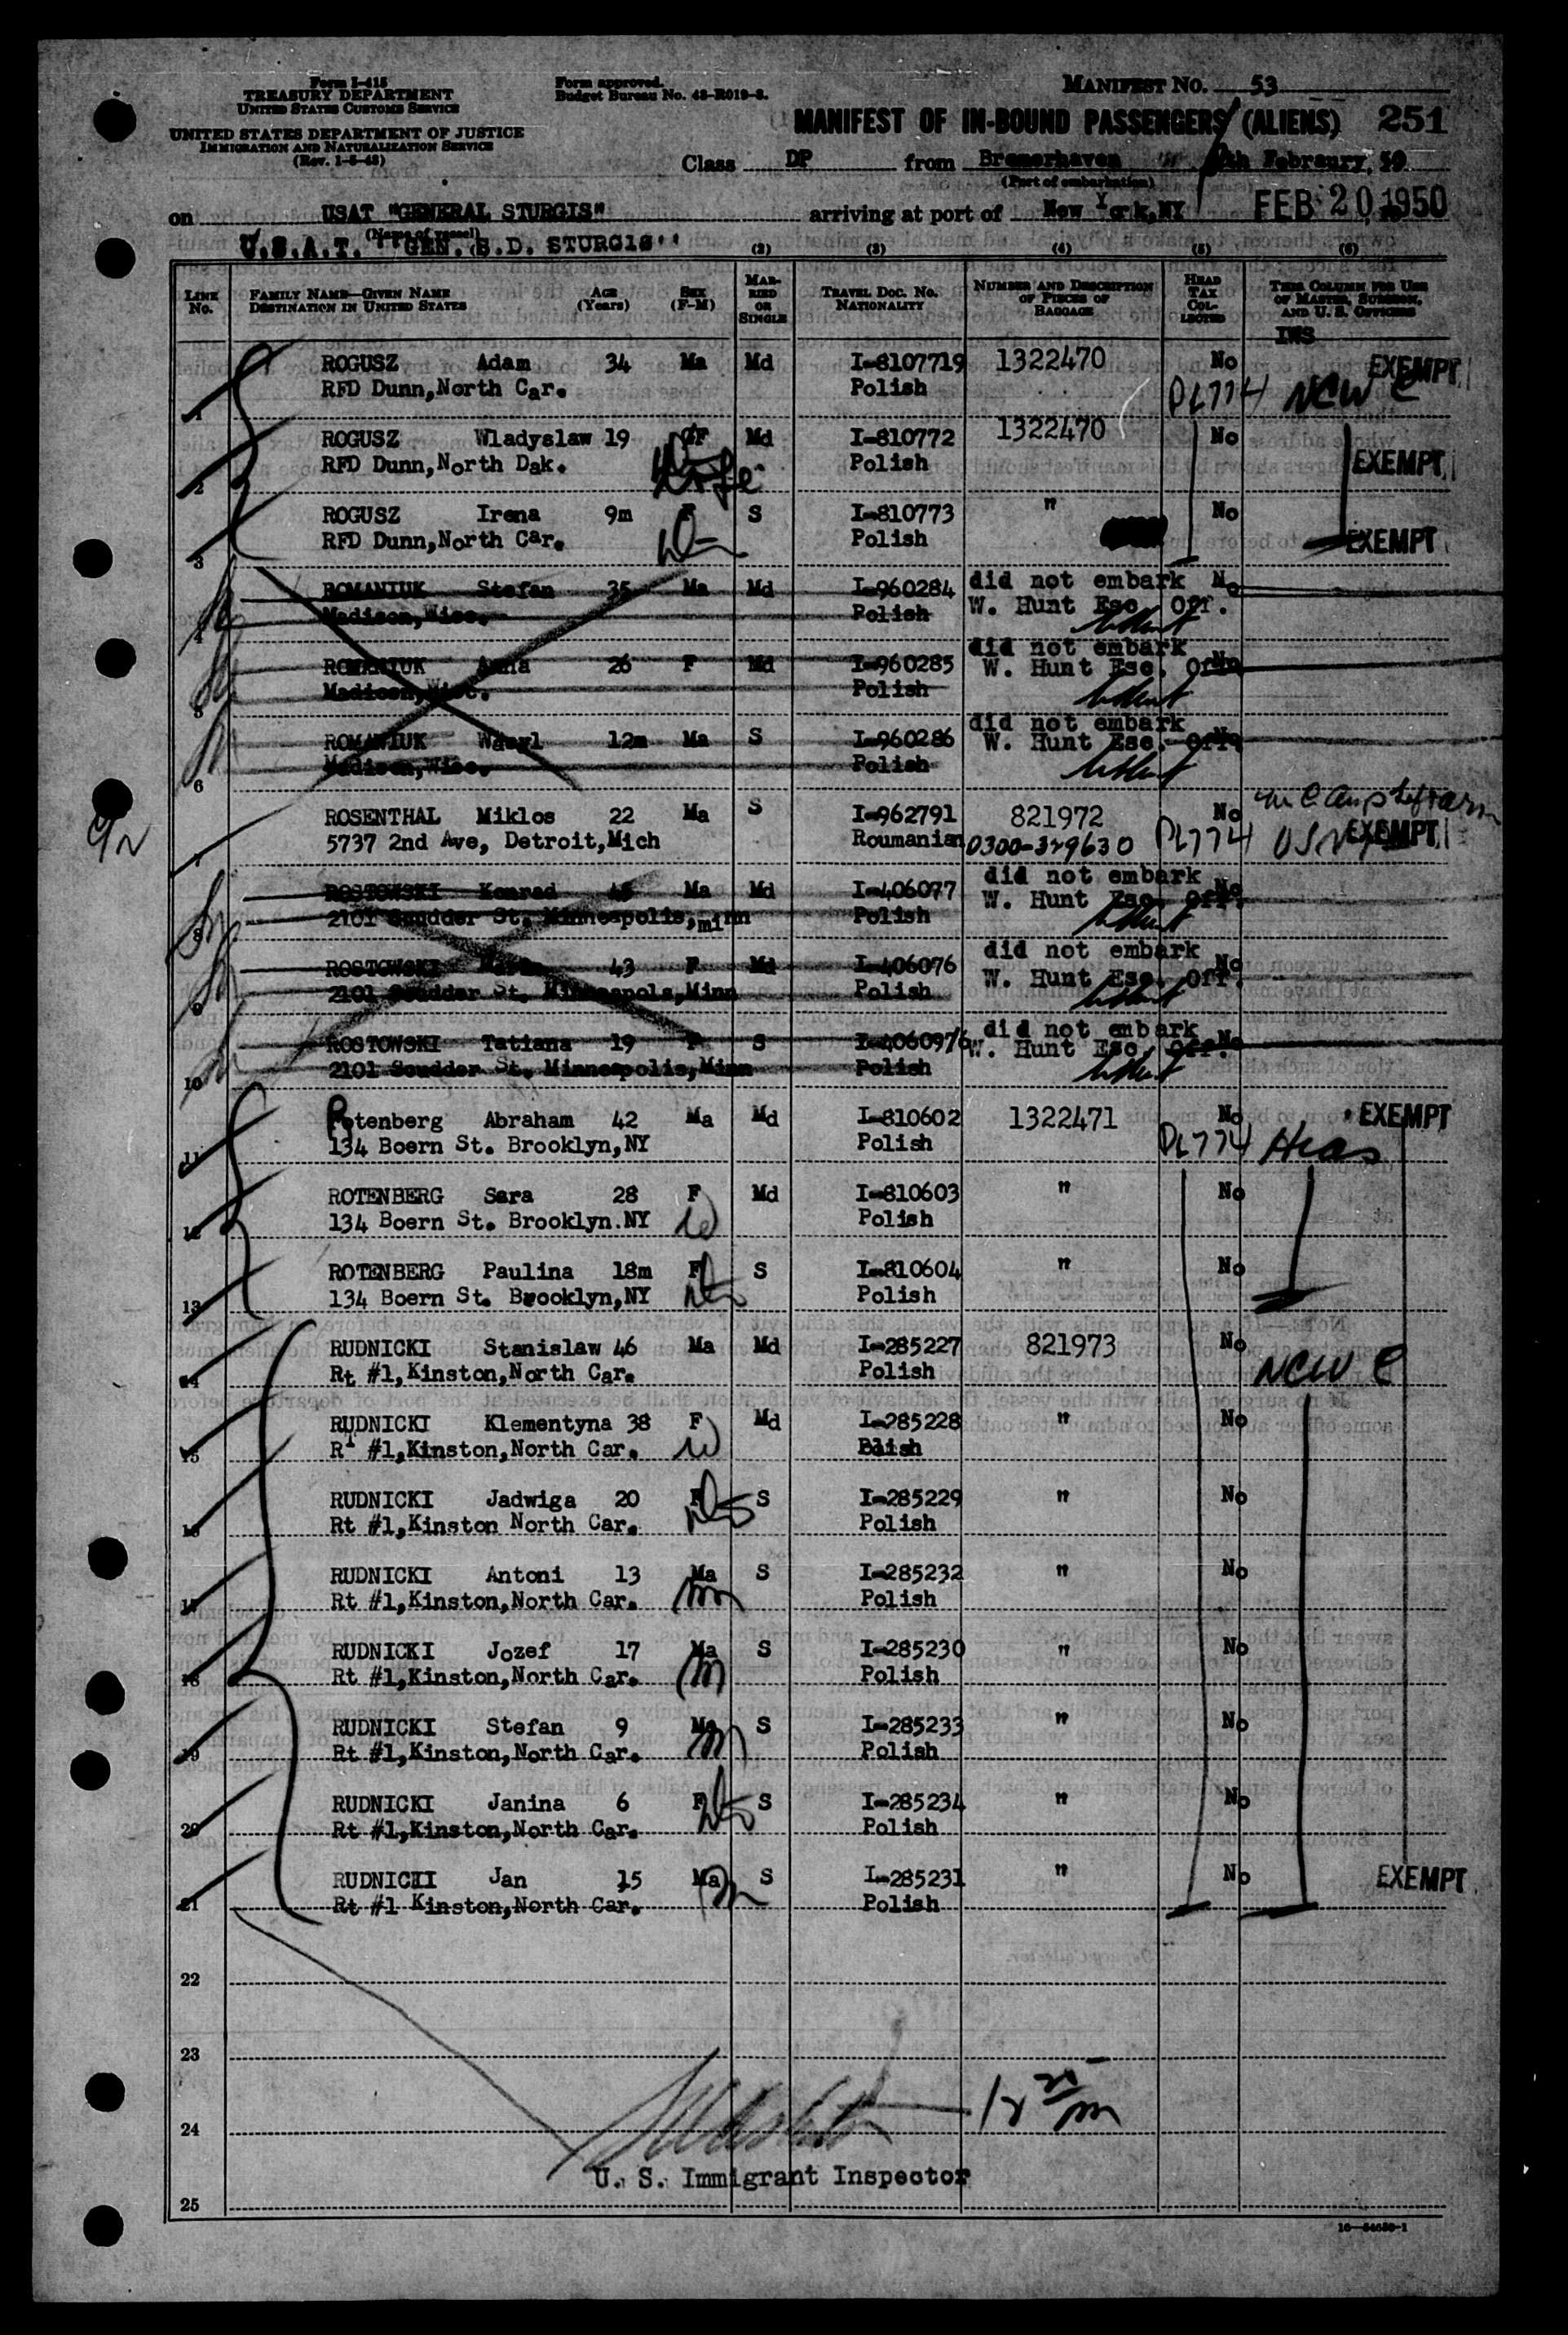 Form I-415
TREASURY DEPARTMENT
UNITED STATES CUSTOMS SERVICE
UNITED STATES DEPARTMENT OF JUSTICE
IMMIGRATION AND NATURALIZATION SERVICE
(Rev. 1-5-48)
Form approved.
Budget Bureau No. 43-R019-3.
MANIFEST NO. 53
MANIFEST OF IN-BOUND PASSENGERS (ALIENS) 251
Class DP from Bremerhaven February, 50
(Port of embarkation)
on USAT "GENERAL STURGIS" arriving at port of New York, NY FEB 20 1950
(Name of vessel)
U.S.A.T. "GEN. S.D. STURGIS"
(2) (3) (4) (5) (6)
LINE NO. FAMILY NAME—GIVEN NAME DESTINATION IN UNITED STATES AGE (YEARS) SEX (F-M) MARRIED OR SINGLE TRAVEL DOC. NO. NATIONALITY NUMBER AND DESCRIPTION OF PIECES OF BAGGAGE HEAD TAX COLLECTED THIS COLUMN FOR USE OF MASTER, SURGEON, AND U. S. OFFICERS
INS
1 ROGUSZ Adam 34 Ma Md I-8107719 1322470 No EXEMPT
RFD Dunn,North Car. Polish DL774 NCWC
2 ROGUSZ Wladyslaw 19 F Md I-810772 1322470 No
RFD Dunn,North Dak. Wife Polish EXEMPT
3 ROGUSZ Irena 9m F S I-810773 " No
RFD Dunn,North Car. Polish EXEMPT
4 ROMANIUK Stefan 35 Ma Md I-960284 did not embark No
Madison,Wisc. Polish W. Hunt Esc. Off.
5 ROMANIUK Anna 26 F Md I-960285 did not embark No
Madison,Wisc. Polish W. Hunt Esc. Off.
6 ROMANIUK Wasyl 12m Ma S I-960286 did not embark No
Madison,Wisc. Polish W. Hunt Esc. Off.
7 ROSENTHAL Miklos 22 Ma S I-962791 821972 No
5737 2nd Ave, Detroit,Mich Roumanian 0300-329630 DL774 USNA EXEMPT
8 ROSTOWSKI Konrad 45 Ma Md I-406077 did not embark No
2101 Scudder St. Minneapolis,minn Polish W. Hunt Esc. Off.
9 ROSTOWSKI 43 F Md I-406076 did not embark No
2101 Scudder St. Minneapols,Minn Polish W. Hunt Esc. Off.
10 ROSTOWSKI Tatiana 19 F S I-4060976 did not embark No
2101 Scudder St. Minneapolis,Minn Polish W. Hunt Esc. Off.
11 Rotenberg Abraham 42 Ma Md I-810602 1322471 No EXEMPT
134 Boern St. Brooklyn,NY Polish DL774 Hias
12 ROTENBERG Sara 28 F Md I-810603 " No
134 Boern St. Brooklyn.NY W Polish
13 ROTENBERG Paulina 18m F S I-810604 " No
134 Boern St. Brooklyn,NY Polish
14 RUDNICKI Stanislaw 46 Ma Md I-285227 821973 No
Rt #1,Kinston,North Car. Polish NCWC
15 RUDNICKI Klementyna 38 F Md I-285228 " No
Rt #1,Kinston,North Car. W Polish
16 RUDNICKI Jadwiga 20 F S I-285229 " No
Rt #1,Kinston North Car. Polish
17 RUDNICKI Antoni 13 Ma S I-285232 " No
Rt #1,Kinston,North Car. Polish
18 RUDNICKI Jozef 17 Ma S I-285230 " No
Rt #1,Kinston,North Car. Polish
19 RUDNICKI Stefan 9 Ma S I-285233 " No
Rt #1,Kinston,North Car. Polish
20 RUDNICKI Janina 6 F S I-285234 " No
Rt #1,Kinston,North Car. Polish
21 RUDNICII Jan 15 Ma S I-285231 " No EXEMPT
Rt #1 Kinston,North Car. Polish
22
23
24
U. S. Immigrant Inspector
25